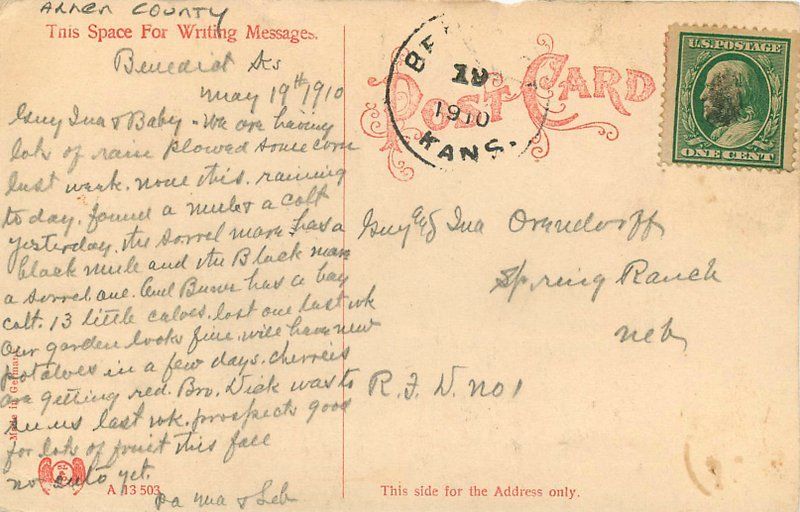 ALLEN COUNTY
This Space For Writing Messages.
Benedict Ks
May 19th 1910
Guy Ina & Baby - We are having
lots of rain plowed some corn
last week. none this. raining
to day. found a mule & a colt
yesterday. the sorrel mare has a
black mule and the Black mare
a sorrel one. and has a bay
colt. 13 little calves. lost one last wk
Our garden looks fine. will have new
potatoes in a few days. cherries
are getting red. Bro. Dick was to
see us last wk. prospects good
for lots of fruit this fall
no auto yet.
Pa Ma &
Made in Germany
A 13503
POST CARD
19
1910
KANS.
U.S. POSTAGE
ONE CENT
Guy & Ina Orendorff
Spring Ranch
Neb
R. F. D. No 1
This side for the Address only.